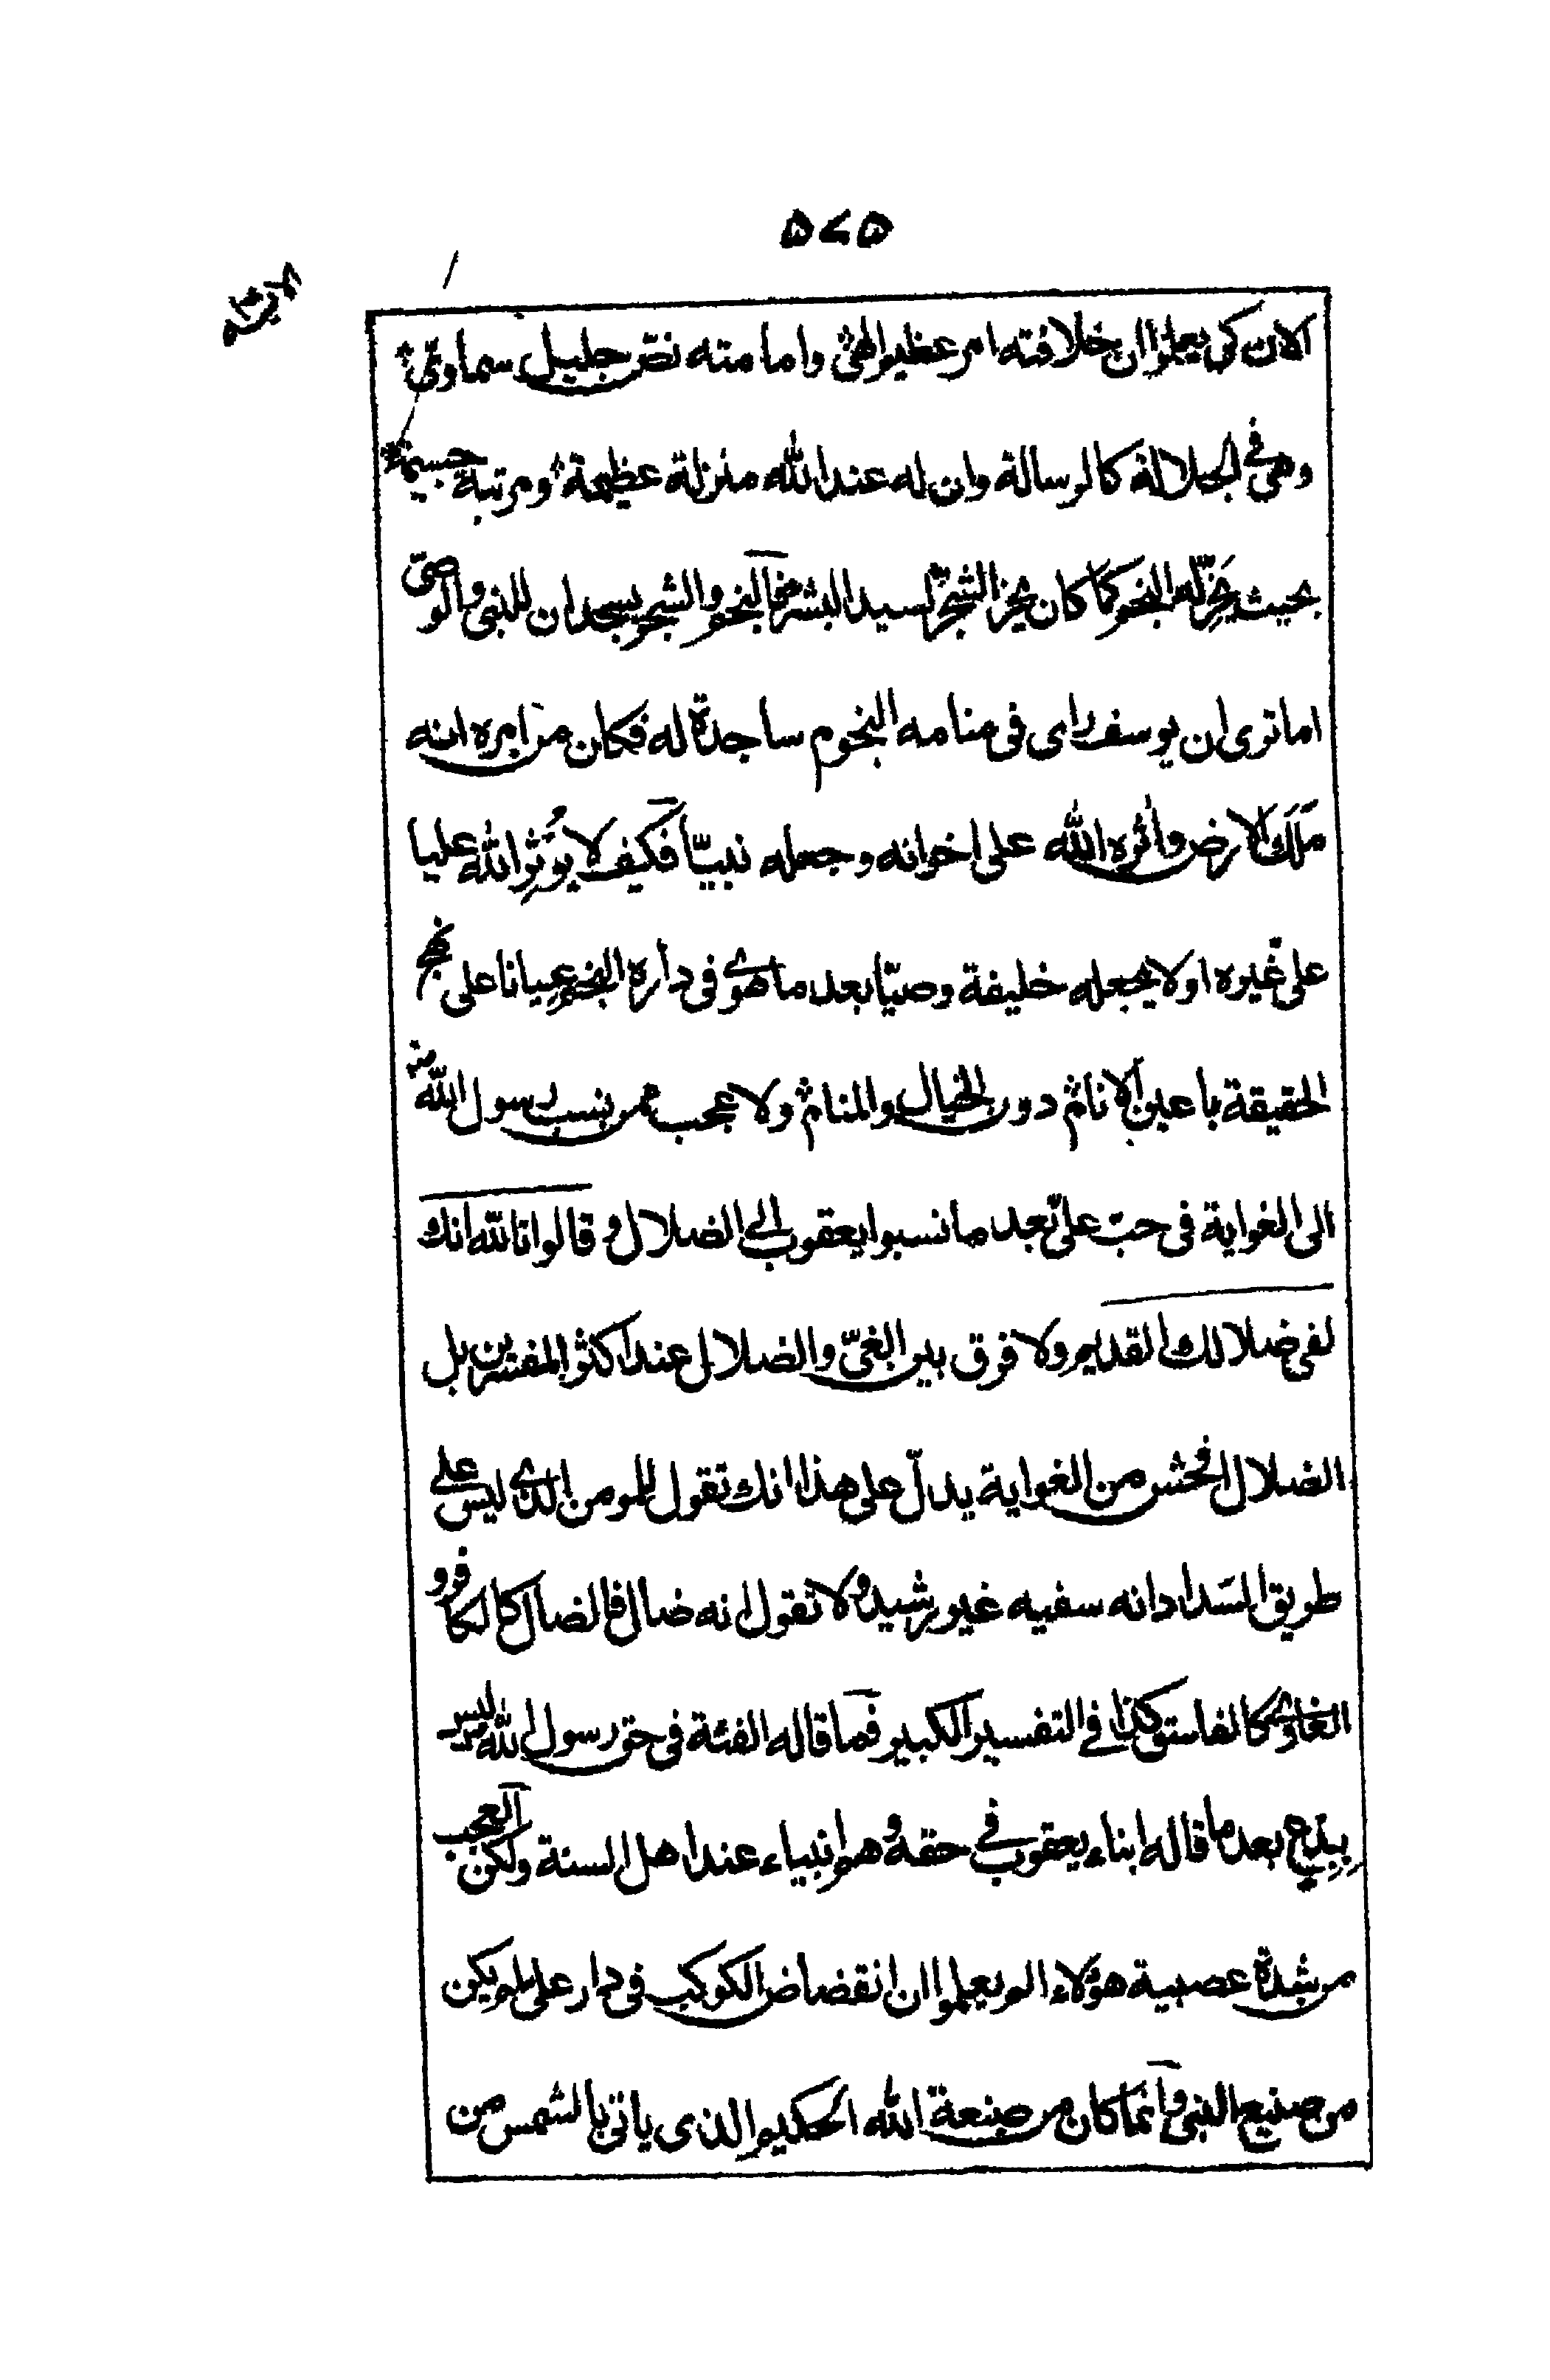 ۵۷۵
الان كي يعلموا ان خلافته امر عظيم الهيّ وامامته نصّ جليل سماويّ
وهي في الجلالة كالرسالة وان له عند الله منزلة عظيمة ومرتبة جسيمة
بحيث يخرّ له النجم كما كان يخر الشجر لسيد البشر فالنجم والشجر يسجدان للنبي والوصيّ
اما ترى ان يوسف راى في منامه النجوم ساجدة له فكان من امره انه
مَلَك الارض واثره الله على اخوانه وجعله نبيّا فكيف لا يُؤثِر الله عليا
على غيره او لا يجعله خليفة وصيّا بعد ما هوى في داره النجم عيانا على نهج
الحقيقة باعين الانام دون الخيال والمنام ولا عجب ممن نسب رسول الله ص
الى الغواية في حبّ عليّ بعد ما نسبوا يعقوب الى الضلال وقالوا تالله انك
لفي ضلالك القديم ولا فرق بين الغيّ والضلال عند اكثر المفسّرين بل
الضلال افحش من الغواية يدلّ على هذا انك تقول للمومن الذي ليس على
طريق السَداد انه سفيه غير رشيد ولا تقول انه ضال فالضال كالكافر و
الغاوي كالفاسق كذا في التفسير الكبير فما قاله الفئة في حق رسول الله ص ليس
بِبِدْعٍ بعد ما قاله ابناء يعقوب في حقه وهم انبياء عند اهل السنة ولكن العجب
من شدة عصبية هؤلاء الم يعلموا ان انقضاض الكوكب في دار على لم يكن
من صنيع النبي وانما كان من صنعة الله الحكيم الذي ياتي بالشمس من